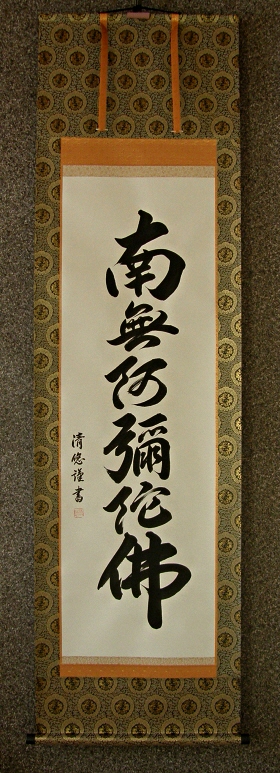 南無阿彌陀佛
清悠謹書